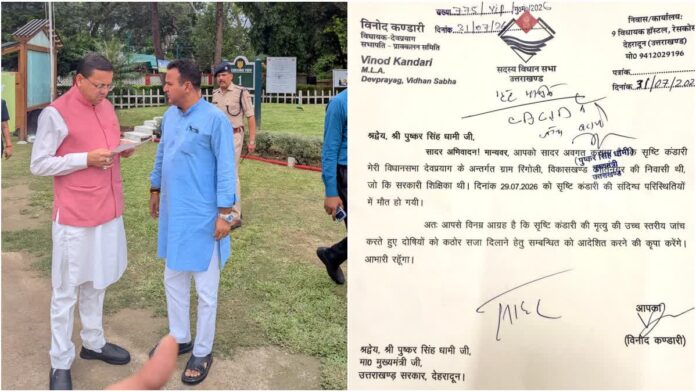 संख्या 775/vip/पु0म0/2026
दिनांक 31/07/26
विनोद कण्डारी
विधायक-देवप्रयाग
सभापति - प्राक्कलन समिति
Vinod Kandari
M.L.A.
Devprayag, Vidhan Sabha
सदस्य विधान सभा
उत्तराखण्ड
निवास/कार्यालय:
9 विधायक हॉस्टल, रेसकोर्स
देहरादून (उत्तराखण्ड)
मो0 9412029196
पत्रांक
दिनांक 31/07/26
श्रद्धेय, श्री पुष्कर सिंह धामी जी,
सादर अभिवादन! मान्यवर, आपको सादर अवगत कि सृष्टि कंडारी
(पुष्कर सिंह धामी)
मुख्यमंत्री
उत्तराखण्ड
मेरी विधानसभा देवप्रयाग के अन्तर्गत ग्राम रिंगोली, विकासखण्ड की निवासी थी,
जो कि सरकारी शिक्षिका थी। दिनांक 29.07.2026 को सृष्टि कंडारी की संदिग्ध परिस्थितियों
में मौत हो गयी।
अतः आपसे विनम्र आग्रह है कि सृष्टि कंडारी की मृत्यु की उच्च स्तरीय जांच
करते हुए दोषियों को कठोर सजा दिलाने हेतु सम्बन्धित को आदेशित करने की कृपा करेंगे।
आभारी रहूँगा।
आपका
(विनोद कण्डारी)
श्रद्धेय, श्री पुष्कर सिंह धामी जी,
मा0 मुख्यमंत्री जी,
उत्तराखण्ड सरकार, देहरादून।